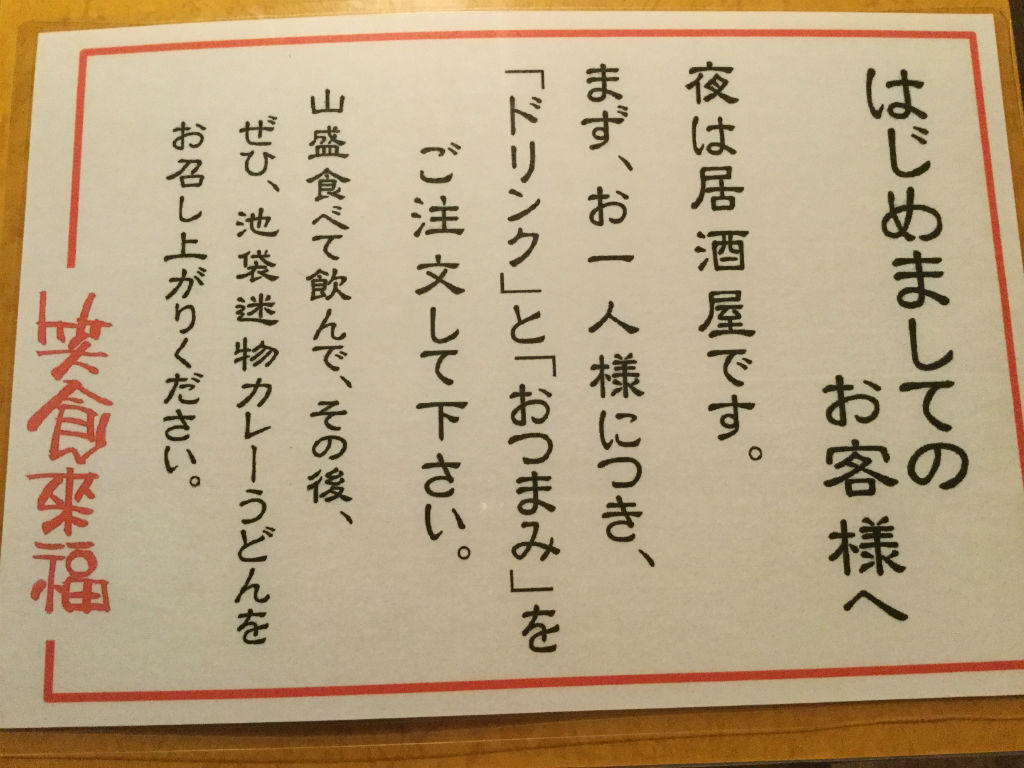 はじめましての
お客様へ
夜は居酒屋です。
まず、お一人様につき、
「ドリンク」と「おつまみ」を
ご注文して下さい。
山盛食べて飲んで、その後、
ぜひ、池袋迷物カレーうどんを
お召し上がりください。
笑食来福